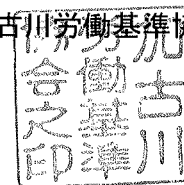 古川労働基準協
加古川
労働基準
協会之印